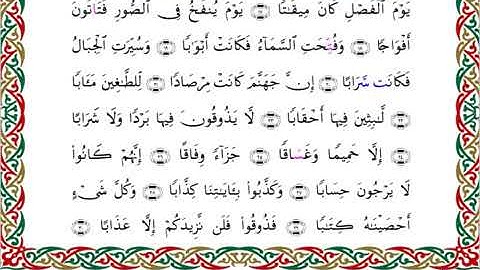 يَوْمَ ٱلْفَصْلِ كَانَ مِيقَٰتًا ١٧ يَوْمَ يُنفَخُ فِى ٱلصُّورِ فَتَأْتُونَ
أَفْوَاجًا ١٨ وَفُتِحَتِ ٱلسَّمَآءُ فَكَانَتْ أَبْوَٰبًا ١٩ وَسُيِّرَتِ ٱلْجِبَالُ
فَكَانَتْ سَرَابًا ٢٠ إِنَّ جَهَنَّمَ كَانَتْ مِرْصَادًا ٢١ لِّلطَّٰغِينَ مَـَٔابًا
٢٢ لَّٰبِثِينَ فِيهَآ أَحْقَابًا ٢٣ لَّا يَذُوقُونَ فِيهَا بَرْدًا وَلَا شَرَابًا
٢٤ إِلَّا حَمِيمًا وَغَسَّاقًا ٢٥ جَزَآءً وِفَاقًا ٢٦ إِنَّهُمْ كَانُوا۟
لَا يَرْجُونَ حِسَابًا ٢٧ وَكَذَّبُوا۟ بِـَٔايَٰتِنَا كِذَّابًا ٢٨ وَكُلَّ شَىْءٍ
أَحْصَيْنَٰهُ كِتَٰبًا ٢٩ فَذُوقُوا۟ فَلَن نَّزِيدَكُمْ إِلَّا عَذَابًا ٣٠